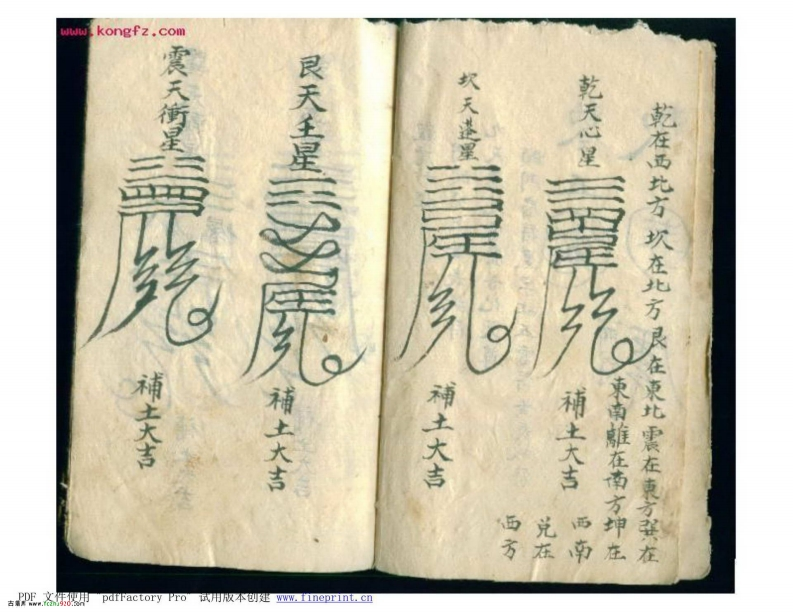 www.kongfz.com
乾在西北方 坎在北方 艮在東北 震在東方 巽在
東南離在南方坤在
西南
兌在
西方
乾天心星
補土大吉
坎天蓬星
補土大吉
艮天壬星
補土大吉
震天衝星
補土大吉
PDF 文件使用 "pdfFactory Pro" 试用版本创建 www.fineprint.cn